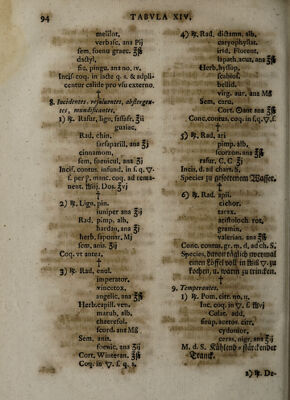 94 TABVLA XIV.
melilot.
verbasc. ana Pij
sem. foenu graec. ℥ß
dactyl.
fic. pingu. ana no. iv.
Incis. coq. in lacte q. s. & adpli-
centur calide pro vsu externo.
†
8. Incidentes, resoluentes, absterger-
tes, mundificantes.
1) ℞. Rasur. lign. sassafr. ℥ij
guaiac,
Rad. chin.
sarsaparill. ana ℥j
cinnamom,
sem. foenicul. ana ʒij
Incis. contus. infund. in s. q. ▽.
f. per p. manc. coq. ad rema-
Dos. ℥vj
†
2) ℞. Lign. pin.
iuniper ana ℥ij
Rad. pimp. alb.
hardan, ana ℥j
herb. saponar. Mj
sem. anis. ʒij
Coq. vt antea.
†
3) ℞. Rad. enul.
imperator.
vincetox.
angelic. ana ℥ß
Herb. capill. ven.
marub. alb.
cheerefol.
scord. ana Mß
Sem. anis.
foenic. ana ʒij
Cort. Winteran. ℥ß
Coq. in ▽. s. q. 1.
4) ℞. Rad. dictamn. alb.
caryophyllat.
irid. Florent.
lapath. acut. ana ℥ß
Herb. hyssop.
scabios.
bellid.
virg. aur. ana Mß
Sem. card.
Cort. ana ℥ß
Conc. contus. coq. in s. q. ▽. f.
†
5) ℞. Rad. ari
pimp. alb.
scorzon. ana ℥ß
rasur. C. C ℥j
Incis. d. ad chart. S.
Species zu gesottenem Wasser.
†
6) ℞. Rad. apii.
cichor.
tarax.
aristoloch. rot.
gramin.
valerian. ana ℥ß
Conc. contus. gr. m. d. ad ch. S.
Species, davon täglich zweymal
einen Löffel voll in ▽. zu
kochen, u. warm zu trincken.
†
9. Temperantes.
1) ℞. Pom. citr. no. ii.
inc. coq. in ▽. s
Colat. add.
sirup. acetos. citr.
cydonior.
ceras. nigr. ana ℥ij
M. d. S. Kühlend-stärckender
Tranck.
2) ℞. De-